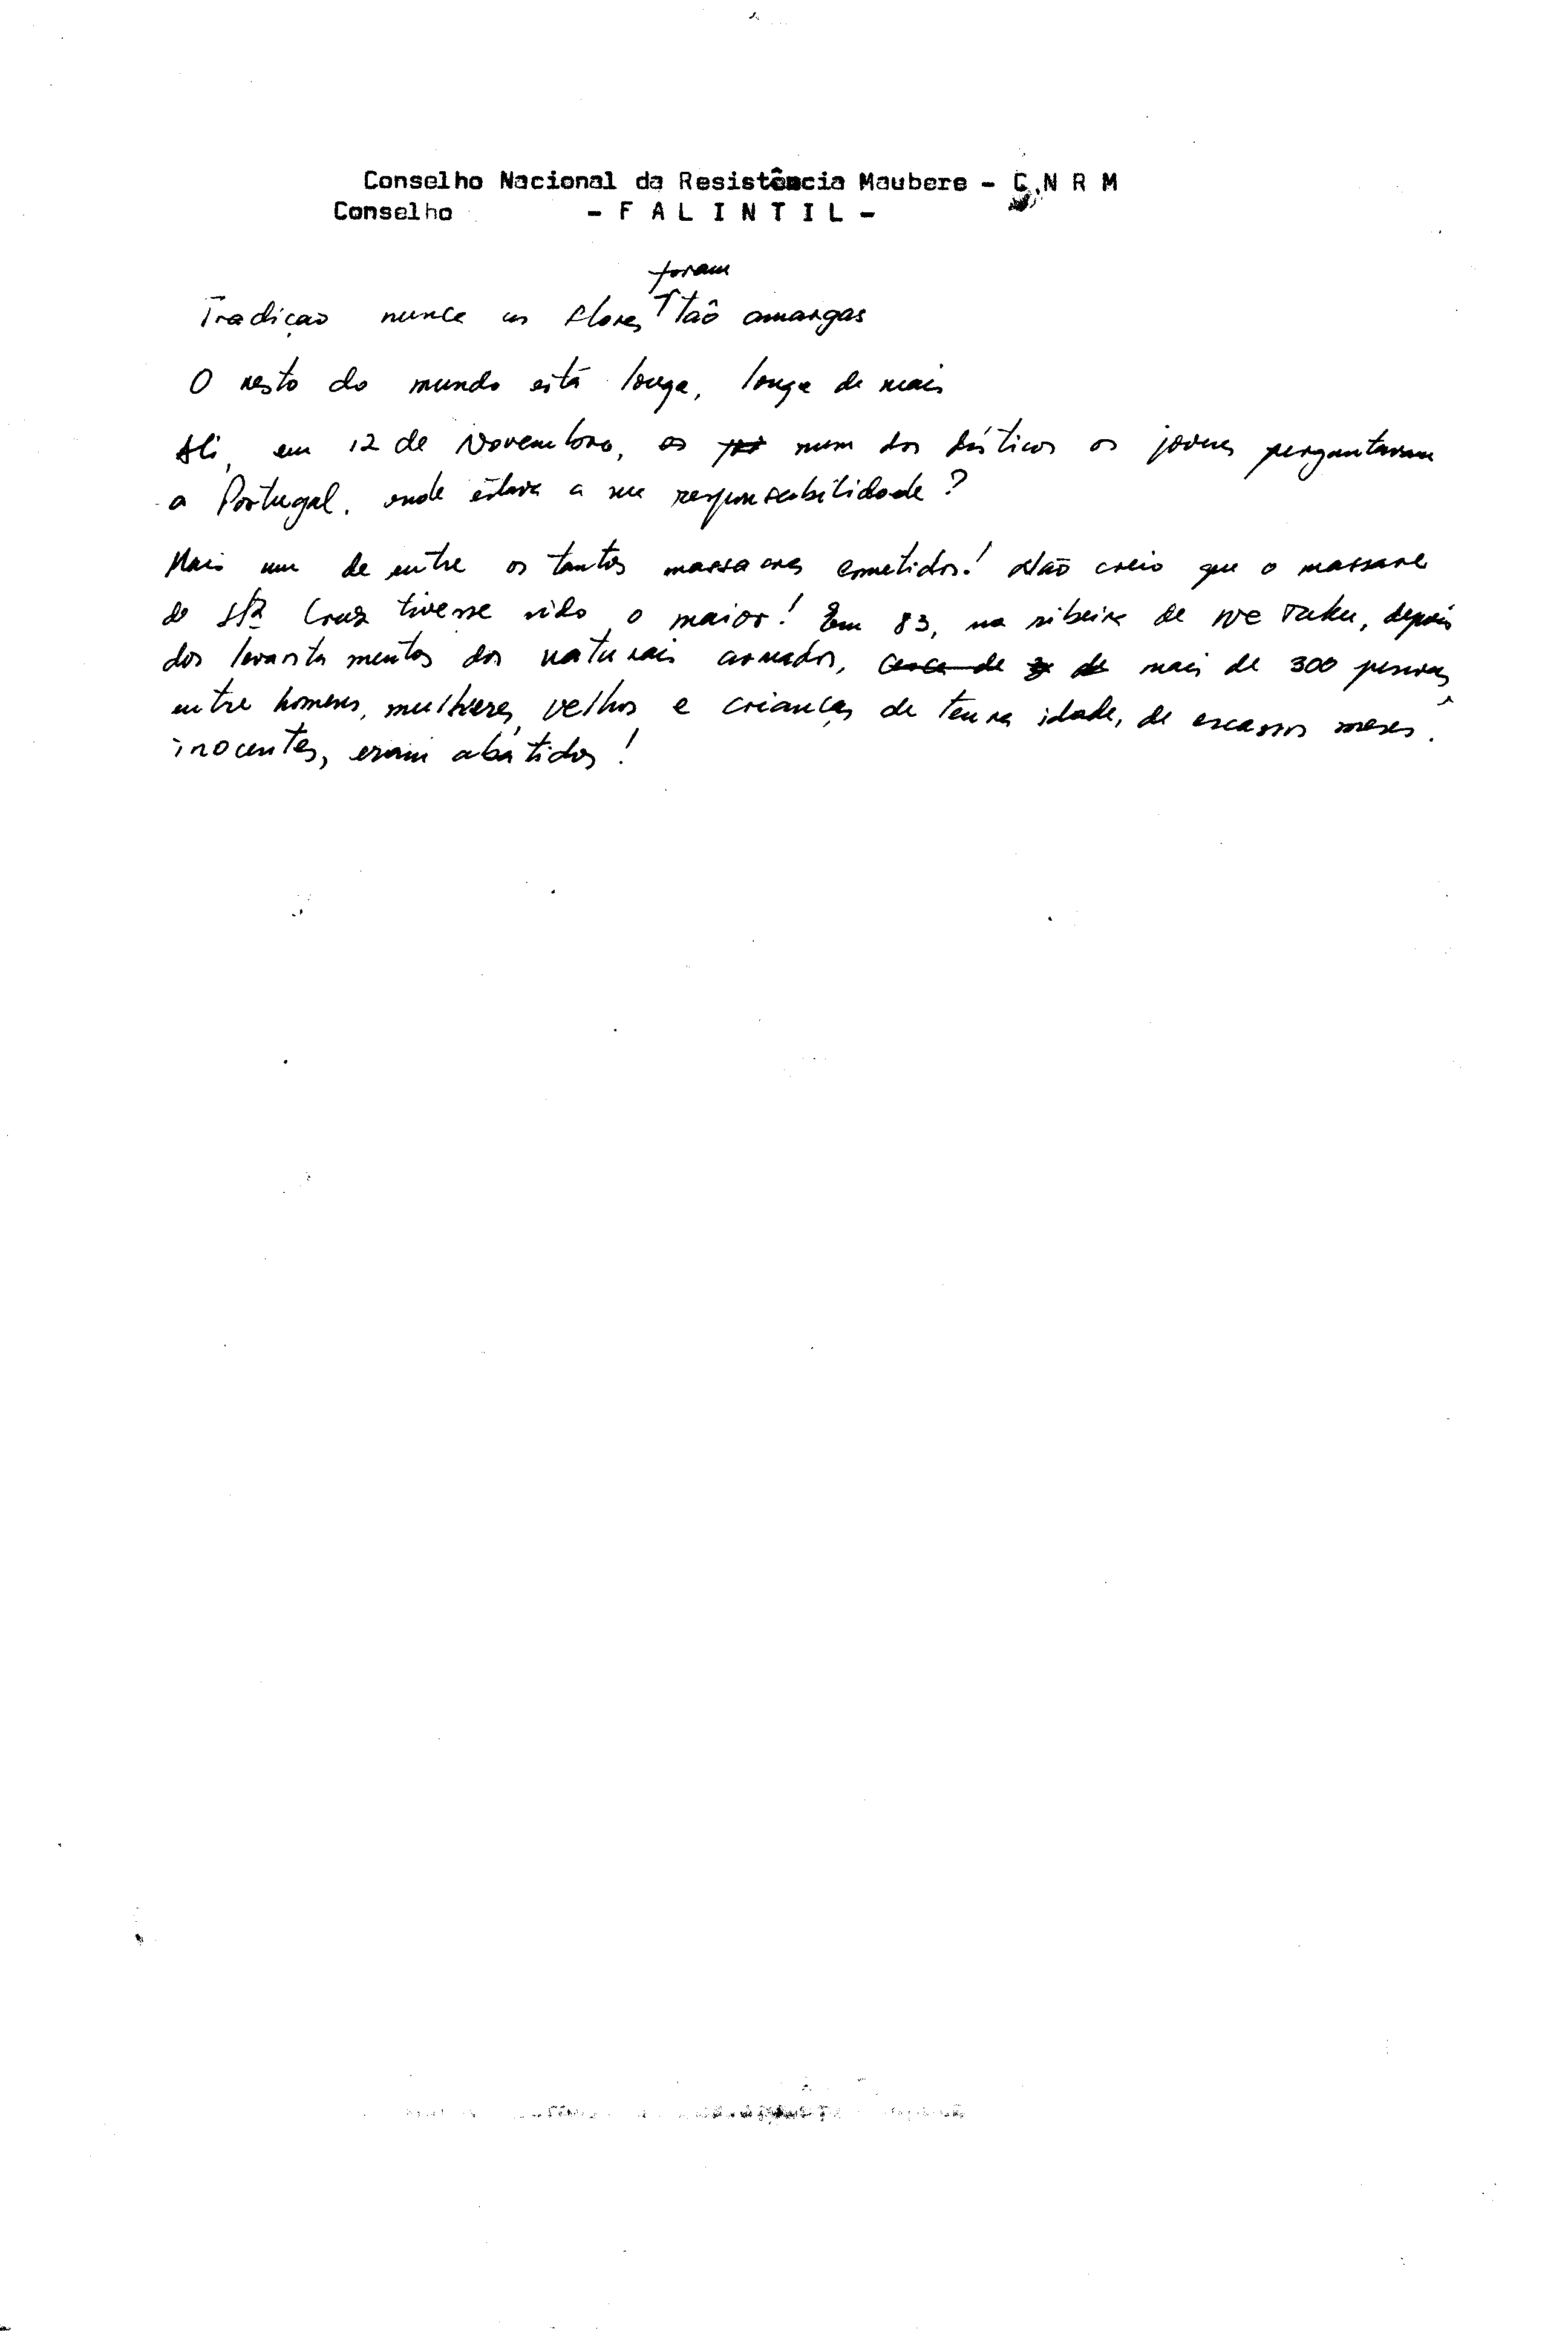 Conselho Nacional da Resistência Maubere - C N R M
Conselho - F A L I N T I L -
foram
Tradiçao nunca as flores tão amargas
O resto do mundo está longe, longe de mais
Ali, em 12 de Novembro, os num dos dísticos os jovens perguntavam
a Portugal, onde estava a sua responsabilidade?
Mais um de entre os tantos massacres cometidos! Não creio que o massacre
de Stª Cruz tivesse sido o maior! Em 83, na ribeira de We Tuku, depois
dos levantamentos dos naturais armados, cerca de de mais de 300 pessoas,
entre homens, mulheres, velhos e crianças de tenra idade, de escassos meses.
inocentes, eram abatidos!